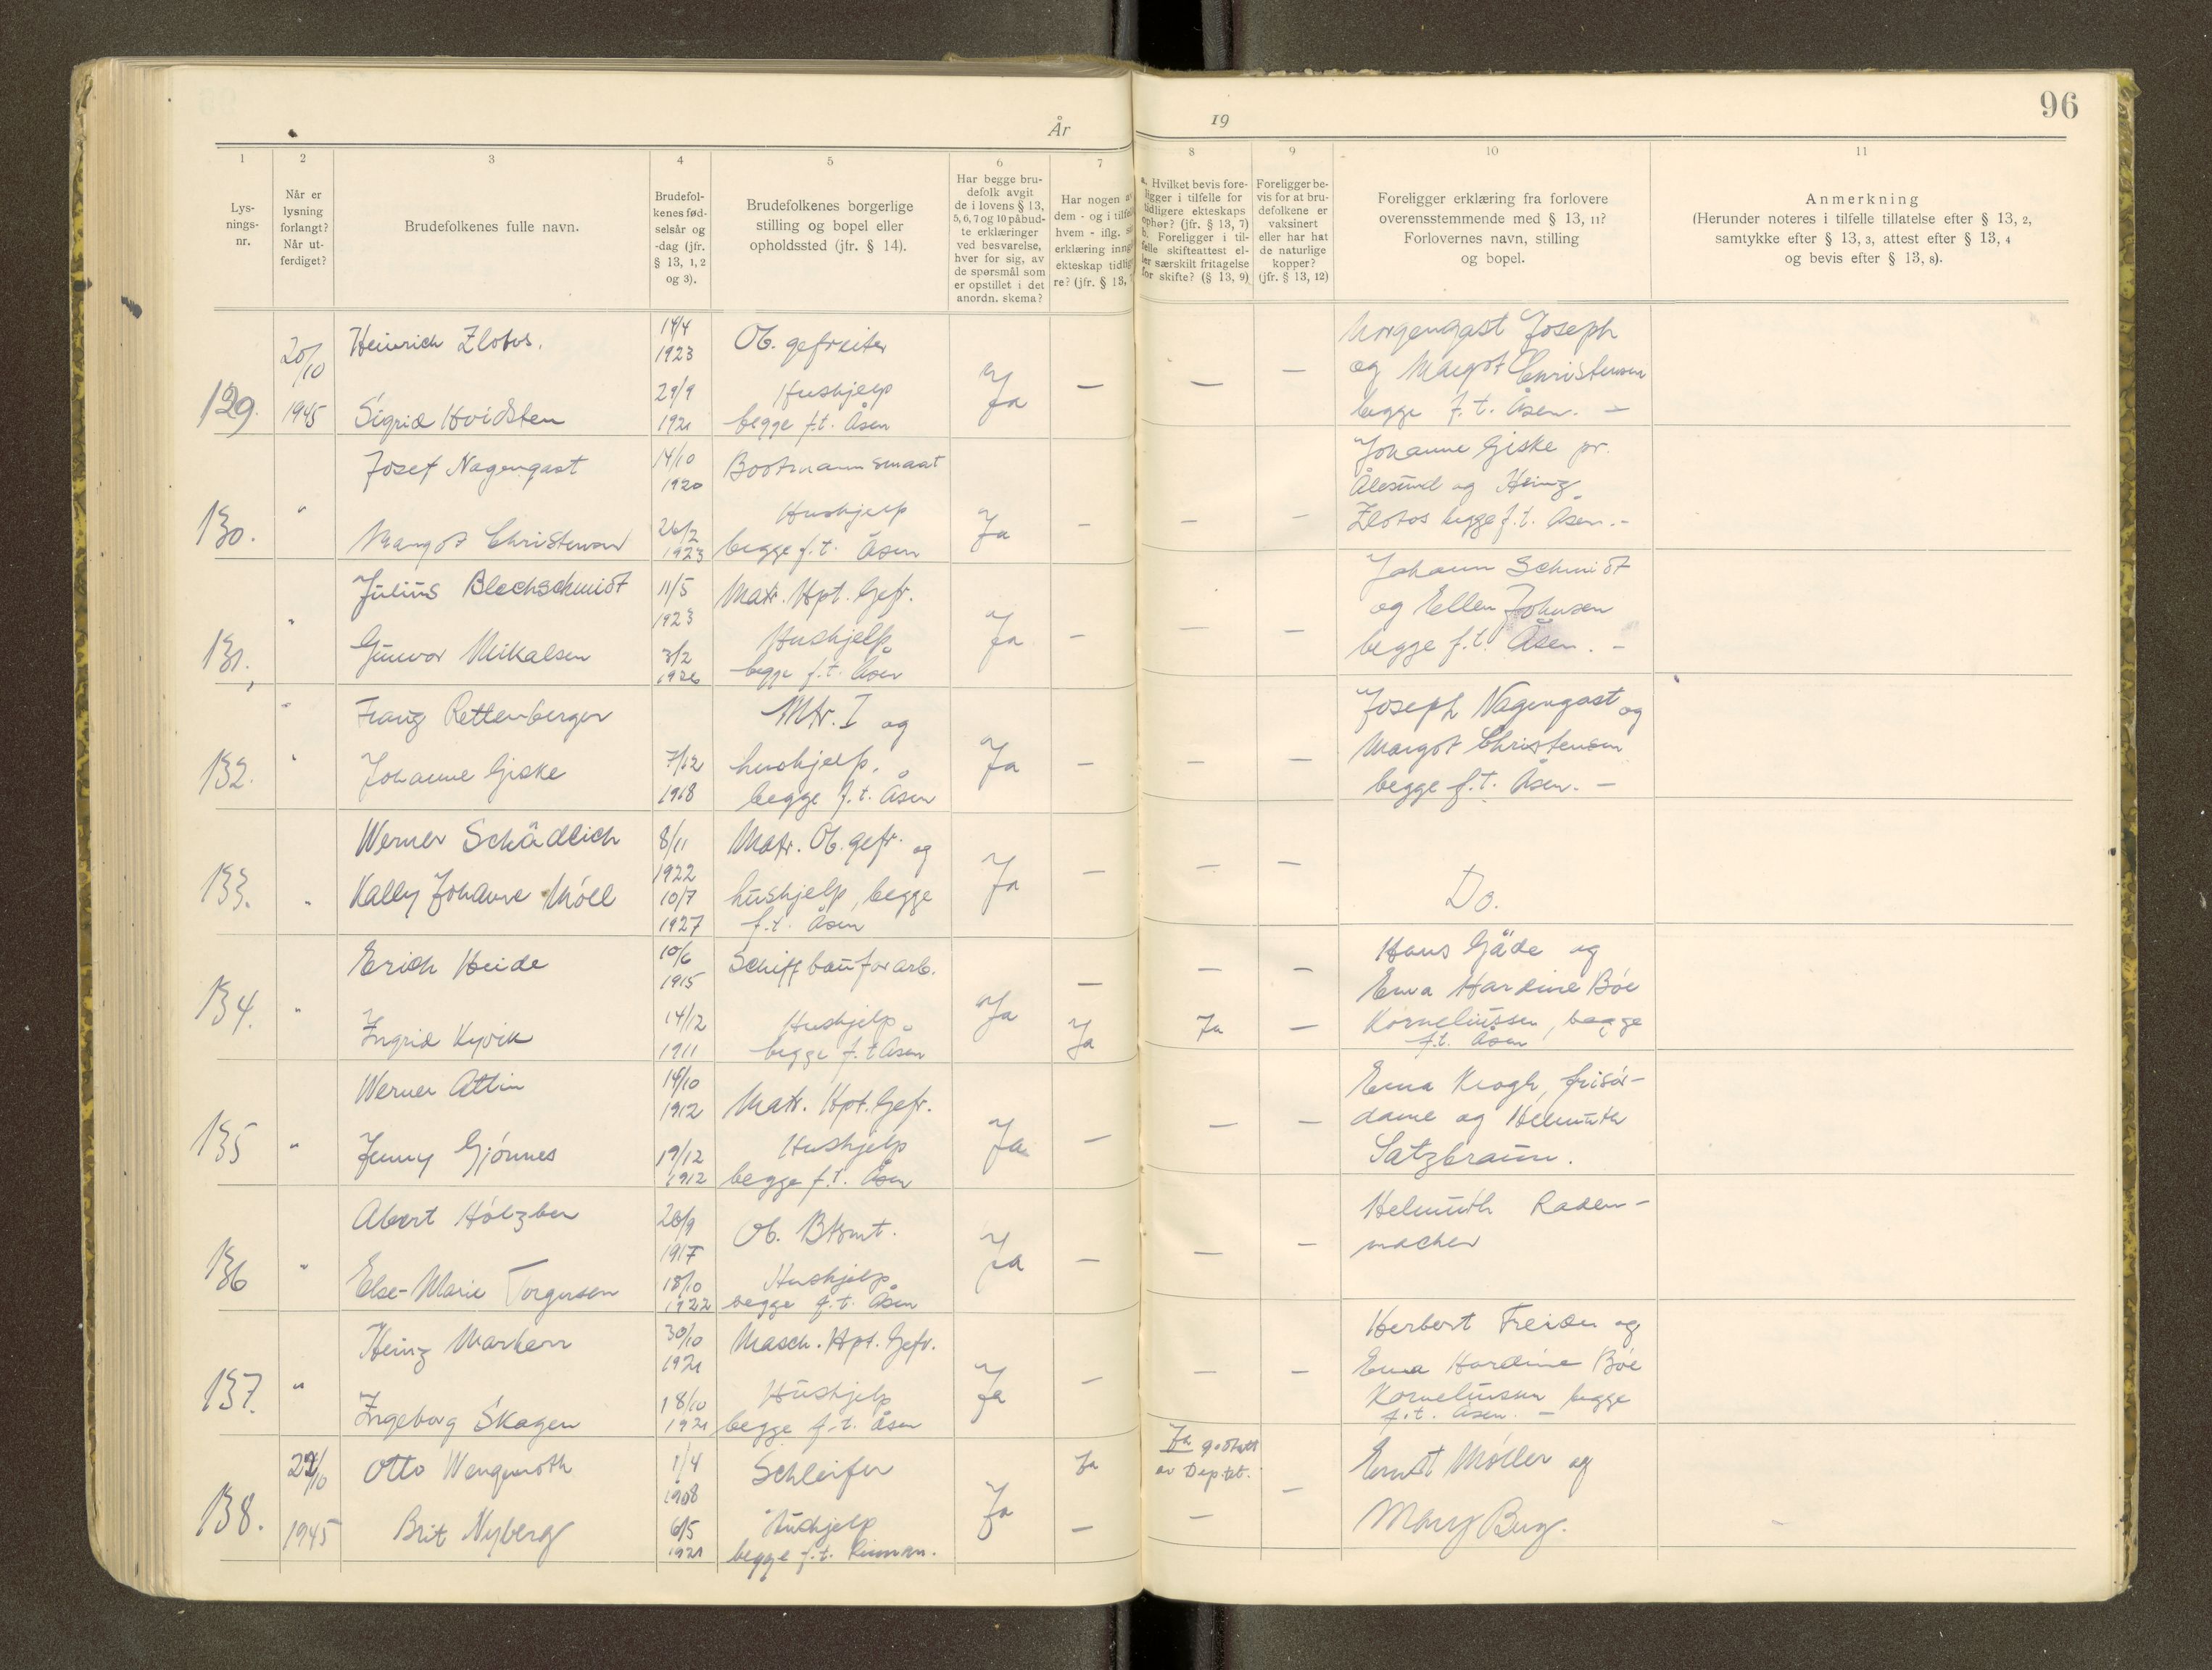 96
År
19
1
2
3
4
5
6
7
8
9
10
11
Lys-
nings-
nr.
Når er
lysning
forlangt?
Når ut-
ferdiget?
Brudefolkenes fulle navn.
Brudefol-
kenes fød-
selsår og
-dag (jfr.
§ 13, 1, 2
og 3).
Brudefolkenes borgerlige
stilling og bopel eller
opholdssted (jfr. § 14).
Har begge bru-
defolk avgit
de i lovens § 13,
5, 6, 7 og 10 påbud-
te erklæringer
ved besvarelse,
hver for sig, av
de spørsmål som
er opstillet i det
anordn. skema?
Har nogen a
dem - og i tilfel
hvem - iflg. s
erklæring inng
ekteskap tidlig
re? (jfr. § 13,
a. Hvilket bevis fore-
ligger i tilfelle for
tidligere ekteskaps
ophør? (jfr. § 13, 7)
b. Foreligger i til-
felle skifteattest el-
ler særskilt fritagelse
for skifte? (§ 13, 9)
Foreligger be-
vis for at bru-
defolkene er
vaksinert
eller har hat
de naturlige
kopper?
(jfr. § 13, 12)
Foreligger erklæring fra forlovere
overensstemmende med § 13, 11?
Forlovernes navn, stilling
og bopel.
Anmerkning
(Herunder noteres i tilfelle tillatelse efter § 13, 2,
samtykke efter § 13, 3, attest efter § 13, 4
og bevis efter § 13, 8).
129.
20/10
1945
Heinrich Zlotos.
Sigrid Hvidsten
14/4
1923
29/9
1921
Ob. gefreiter
Hushjelp
begge f.t. Åsen
Ja
—
—
—
Morgengast Joseph
og Margot Christensen
begge f.t. Åsen. —
130.
"
Josef Nagengast
Margot Christensen
14/10
1920
26/2
1923
Bootsmannsmaat
Hushjelp
begge f.t. Åsen
Ja
—
—
—
Johanne Giske pr.
Ålesund og Heinz
Zlotos begge f.t. Åsen. -
131.
"
Julius Blechschmidt
Gunvor Mikalsen
11/5
1923
3/2
1926
Matr. Hpt. Gefr.
Hushjelp
begge f.t. Åsen
Ja
—
—
—
Johann Schmidt
og Ellen Johnsen
begge f.t. Åsen. -
132.
"
"
Franz Rettenberger
Johanne Giske
7/12
1918
Mtr. I og
hushjelp.
begge f.t. Åsen
Ja
—
—
—
Joseph Nagengast og
Margot Christensen
begge f.t. Åsen. —
133.
"
Werner Schädlich
Kally Johanne Möll
8/11
1922
10/7
1927
Matr. Ob. gefr. og
hushjelp, begge
f.t. Åsen
Ja
—
—
—
Do.
134.
"
Erich Heide
Ingrid Kyvik
10/6
1915
14/12
1911
Schiffbauforarb.
Hushjelp
begge f.t. Åsen
Ja
—
Ja
—
Ja
—
—
Hans Gäde og
Erna Hardine Böe
Korneliussen, begge
f.t. Åsen
135
"
Werner Attin
Jenny Gjönnes
14/10
1912
19/12
1912
Matr. Hpt. Gefr.
Hushjelp
begge f.t. Åsen
Ja
—
—
—
Erna Krogh, frisör-
dame og Helmuth
Satzbraun.
136
"
Abert Hölzben
Else-Marie Torgersen
1917
18/10
1922
Ob. Btsmt.
Hushjelp
begge f.t. Åsen
Ja
—
—
—
Helmuth Rader-
macher
137.
"
Heinz Markerr
Ingeborg Skagen
30/10
1921
18/10
1921
Masch. Hpt. Gefr.
Hushjelp
begge f.t. Åsen
Ja
—
—
—
Herbert Freider og
Erna Hardine Böe
Korneliussen begge
f.t. Åsen. —
138.
1945
Otto Wengenroth
Brit Nyberg
1/4
1908
6/5
1921
Schleifer
Hushjelp
begge f.t.
Ja
Ja
—
Ja godtatt
av Deptet.
—
—
Ernst Möller og
Mary